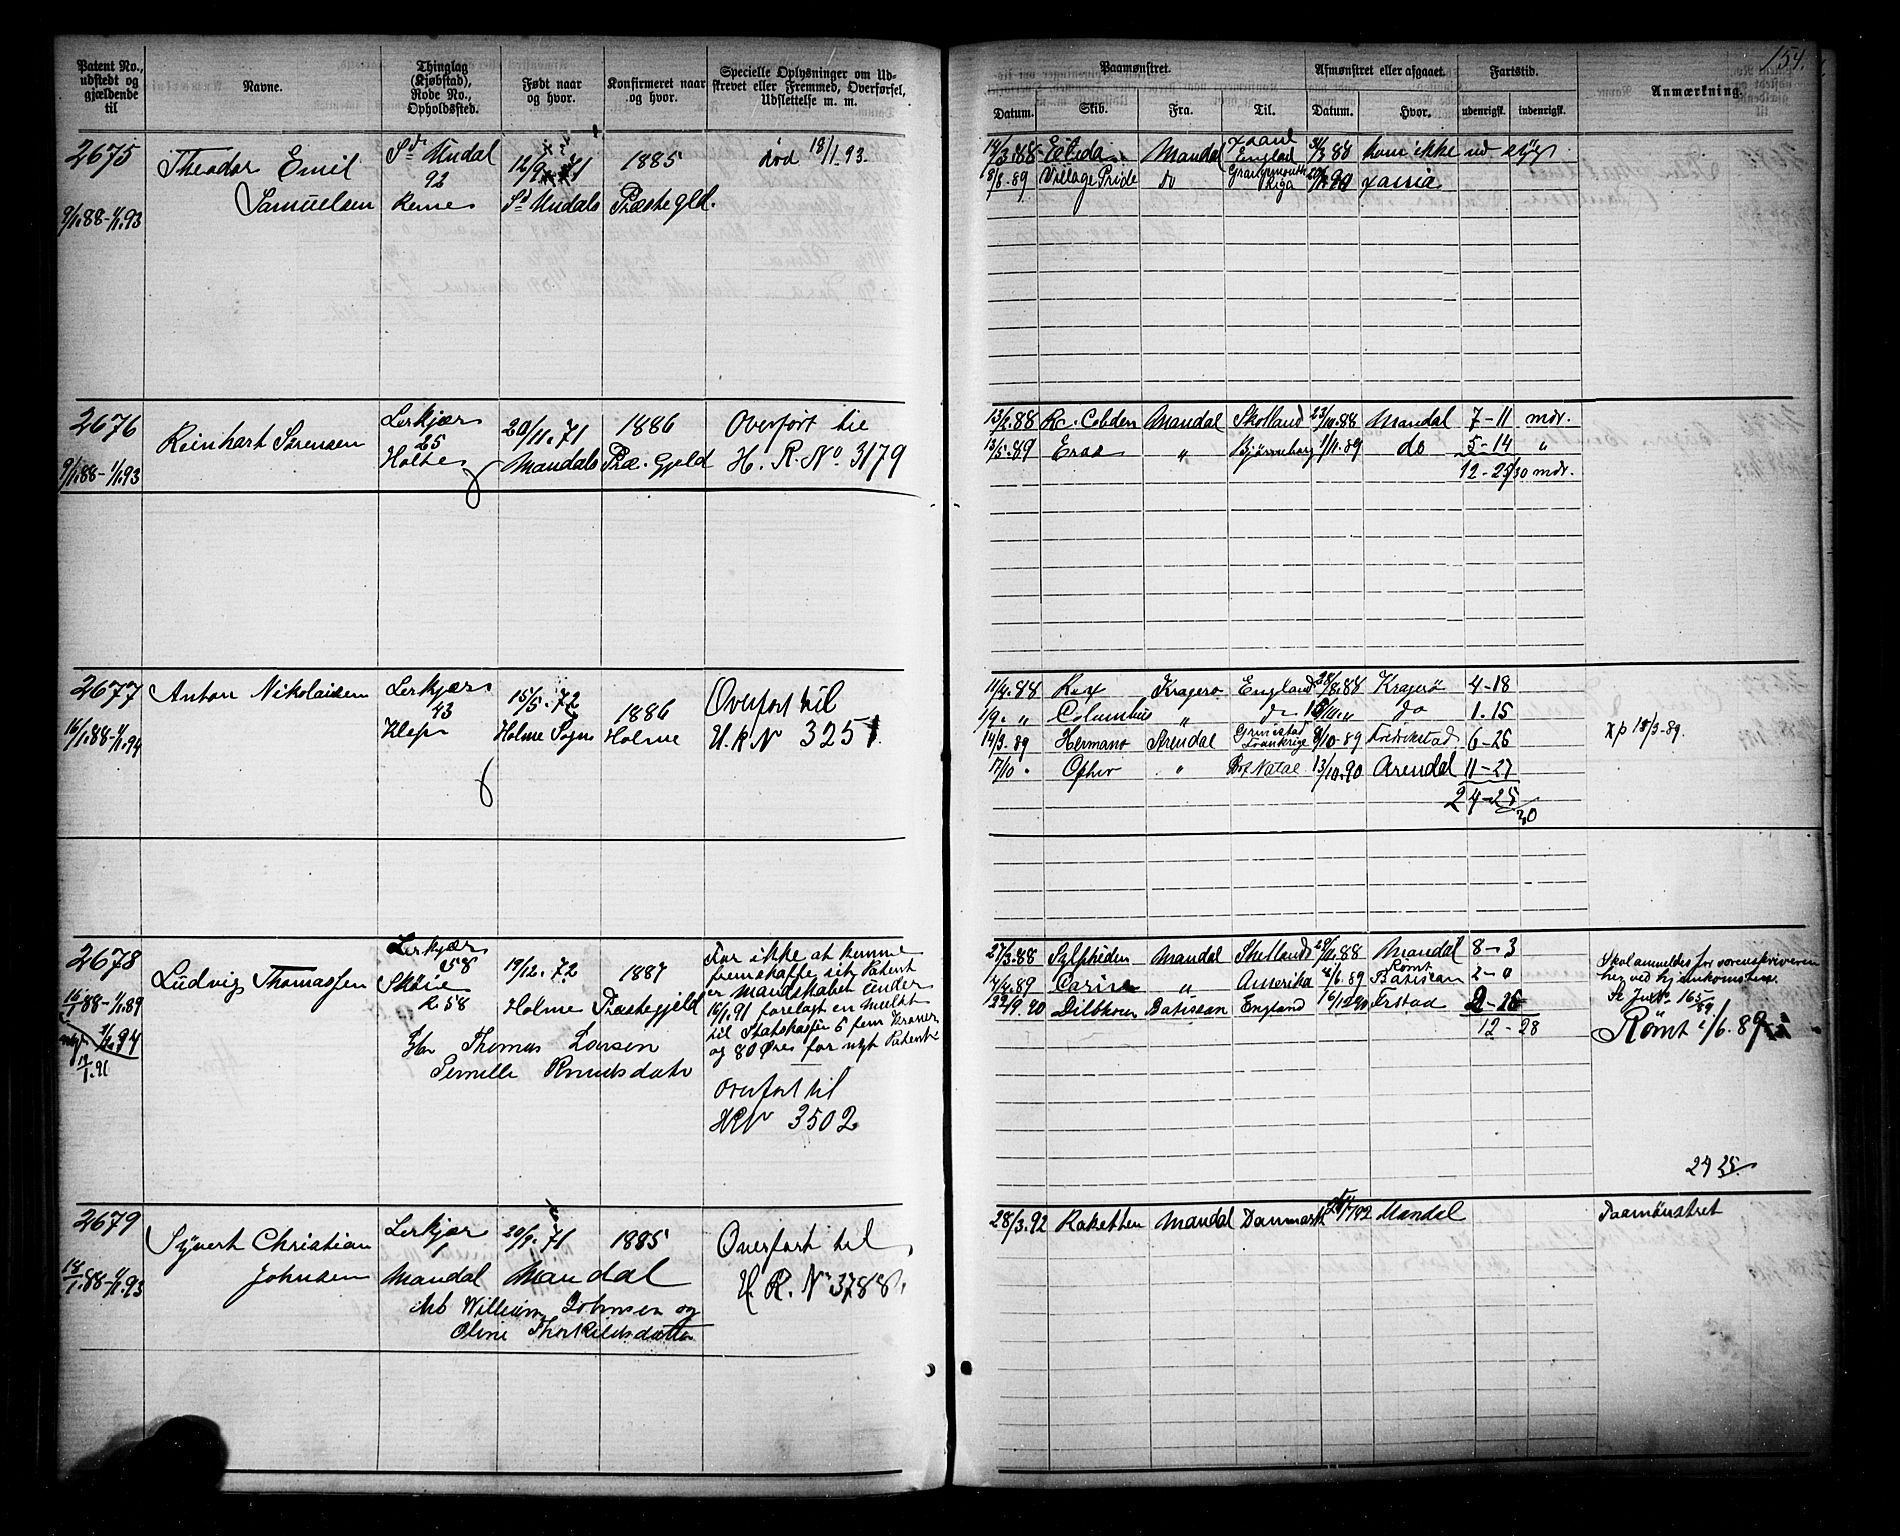 154.
Patent No., udstedt og gjældende til
Navne.
Thinglag (Kjøbstad), Rode No., Opholdssted.
Født naar og hvor.
Konfirmeret naar og hvor.
Specielle Oplysninger om Udskrevet eller Fremmed, Overførsel, Udslettelse m. m.
Paamønstret.
Afmønstret eller afgaaet.
Fartstid.
Anmærkning.
Datum.
Skib.
Fra.
Til.
Datum.
Hvor.
udenrigsk.
indenrigsk.
2675
9/1.88-1/1.93
Theodor Emil
Samuelsen
Sdr Undal
92
12/9 71
Sd Undals
1885
Præstegld.
død 18/1.93.
14/3.88 Mandal England 88 kom ikke ud
8/8.89 Village Pride do Grangemouth Riga
2676
9/1.88-1/1.93
Reinhart Sørensen
Lerkjær
25
Holte
20/11.71
Mandals
1886
Præ. Gjeld
Overført til
H. R. No. 3179
13/2.88 R. Cobden Mandal Skotland 23/10.88 Mandal 7-11 mdr.
13/5.89 Eros " Bjørneborg 1/11.89 do 5-14 "
12-25/30 mdr.
2677
16/1.88-1/1.94
Anton Nikolaisen
Lerkjær
43
Klep
15/5.72
Holme Sogn
1886
Holme
Overført til
H.R No 3251
11/4.88 Rex Kragerø England 28/8.88 Kragerø 4-18
1/9. " Columbus " do do 1.15
14/3.89 Hermann Arendal Grimstad 8/10-89 Fredrikstad 6-26
17/10 " Ophir " Port Natal 13/10.90 Arendal 11-27
24-25/30
18/3-89.
2678
16/1 88-1/1.89
nyt 1/1.94
17/1.91
Ludvig Thomassen
Lerkjær
58
R. 58
19/12.72
Holme
1887
Præstegjeld
Thomas Larsen
Pernille Knudsdatter
For ikke at kunne
fremskaffe sit Patent
er Mandskabet under
16/1.91 forelagt en mulkt
til Statskassen 5 fem Kroner
og 80 Øres for nyt Patent
Overført til
HRN 3502
27/3.88 Sylphiden Mandal Shetland 88 Mandal 8-3
17/4.89 Carine " Amerika 8/6.89 Rømt Batiscan 2-0
9.90 Dilbhour Batiscan England 16/12 90 Grstad 2-25
12-28
Rømt 8/6.89
24 25
2679
18/1.88-1/1.93
Syvert Christian
Johnsen
Lerkjær
Mandal
20/9.71
Mandal
1885
William Johnsen og
Oline Thorkildsdatter
Overført til
H. R. No 3788.
28/3.92 Raketten Mandal Danmark 92 Mandal
Paamønstret